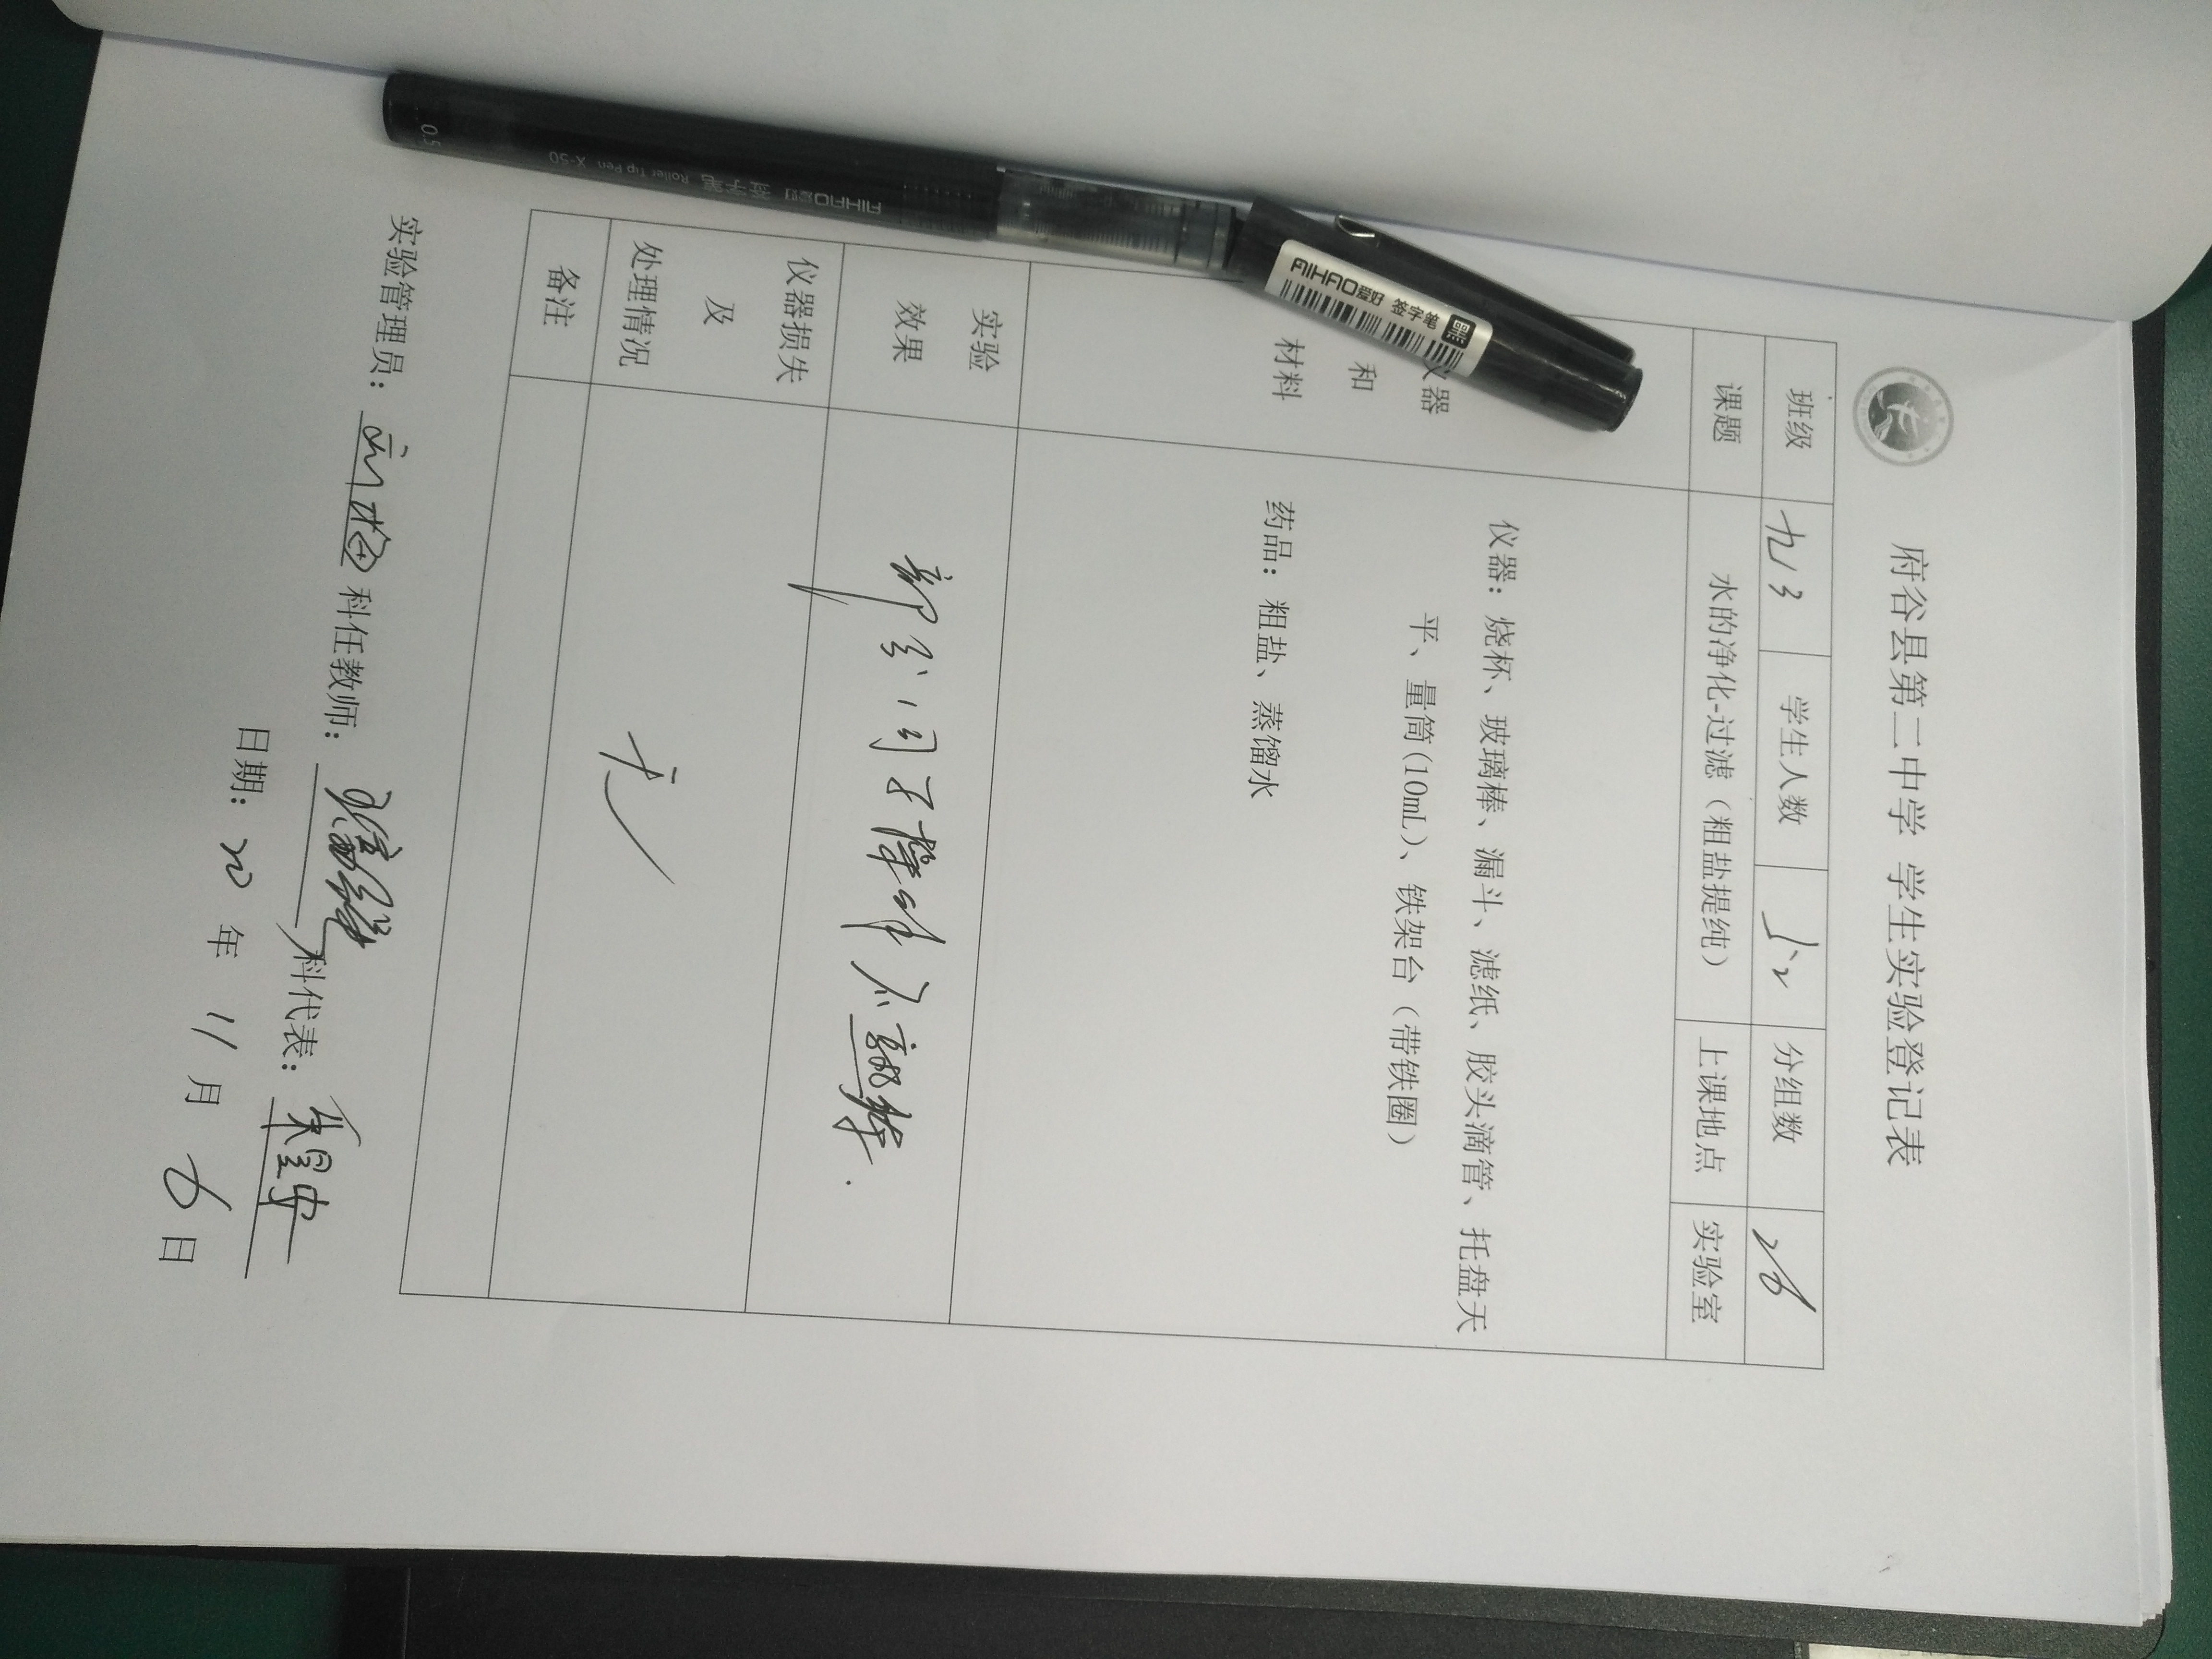 府谷县第二中学 学生实验登记表
班级 九13 学生人数 52 分组数 26
课题 水的净化-过滤（粗盐提纯） 上课地点 实验室
仪器
和
材料
仪器：烧杯、玻璃棒、漏斗、滤纸、胶头滴管、托盘天
平、量筒(10mL)、铁架台（带铁圈）
药品：粗盐、蒸馏水
实验
效果
部分同学操作不熟练.
仪器损失
及
处理情况
无
备注
实验管理员： 科任教师： 科代表：
日期：20 年 11 月 6 日
AIHAO爱好 签字笔
AIHAO爱好 签字笔 Roller Tip Pen X-50
0.5